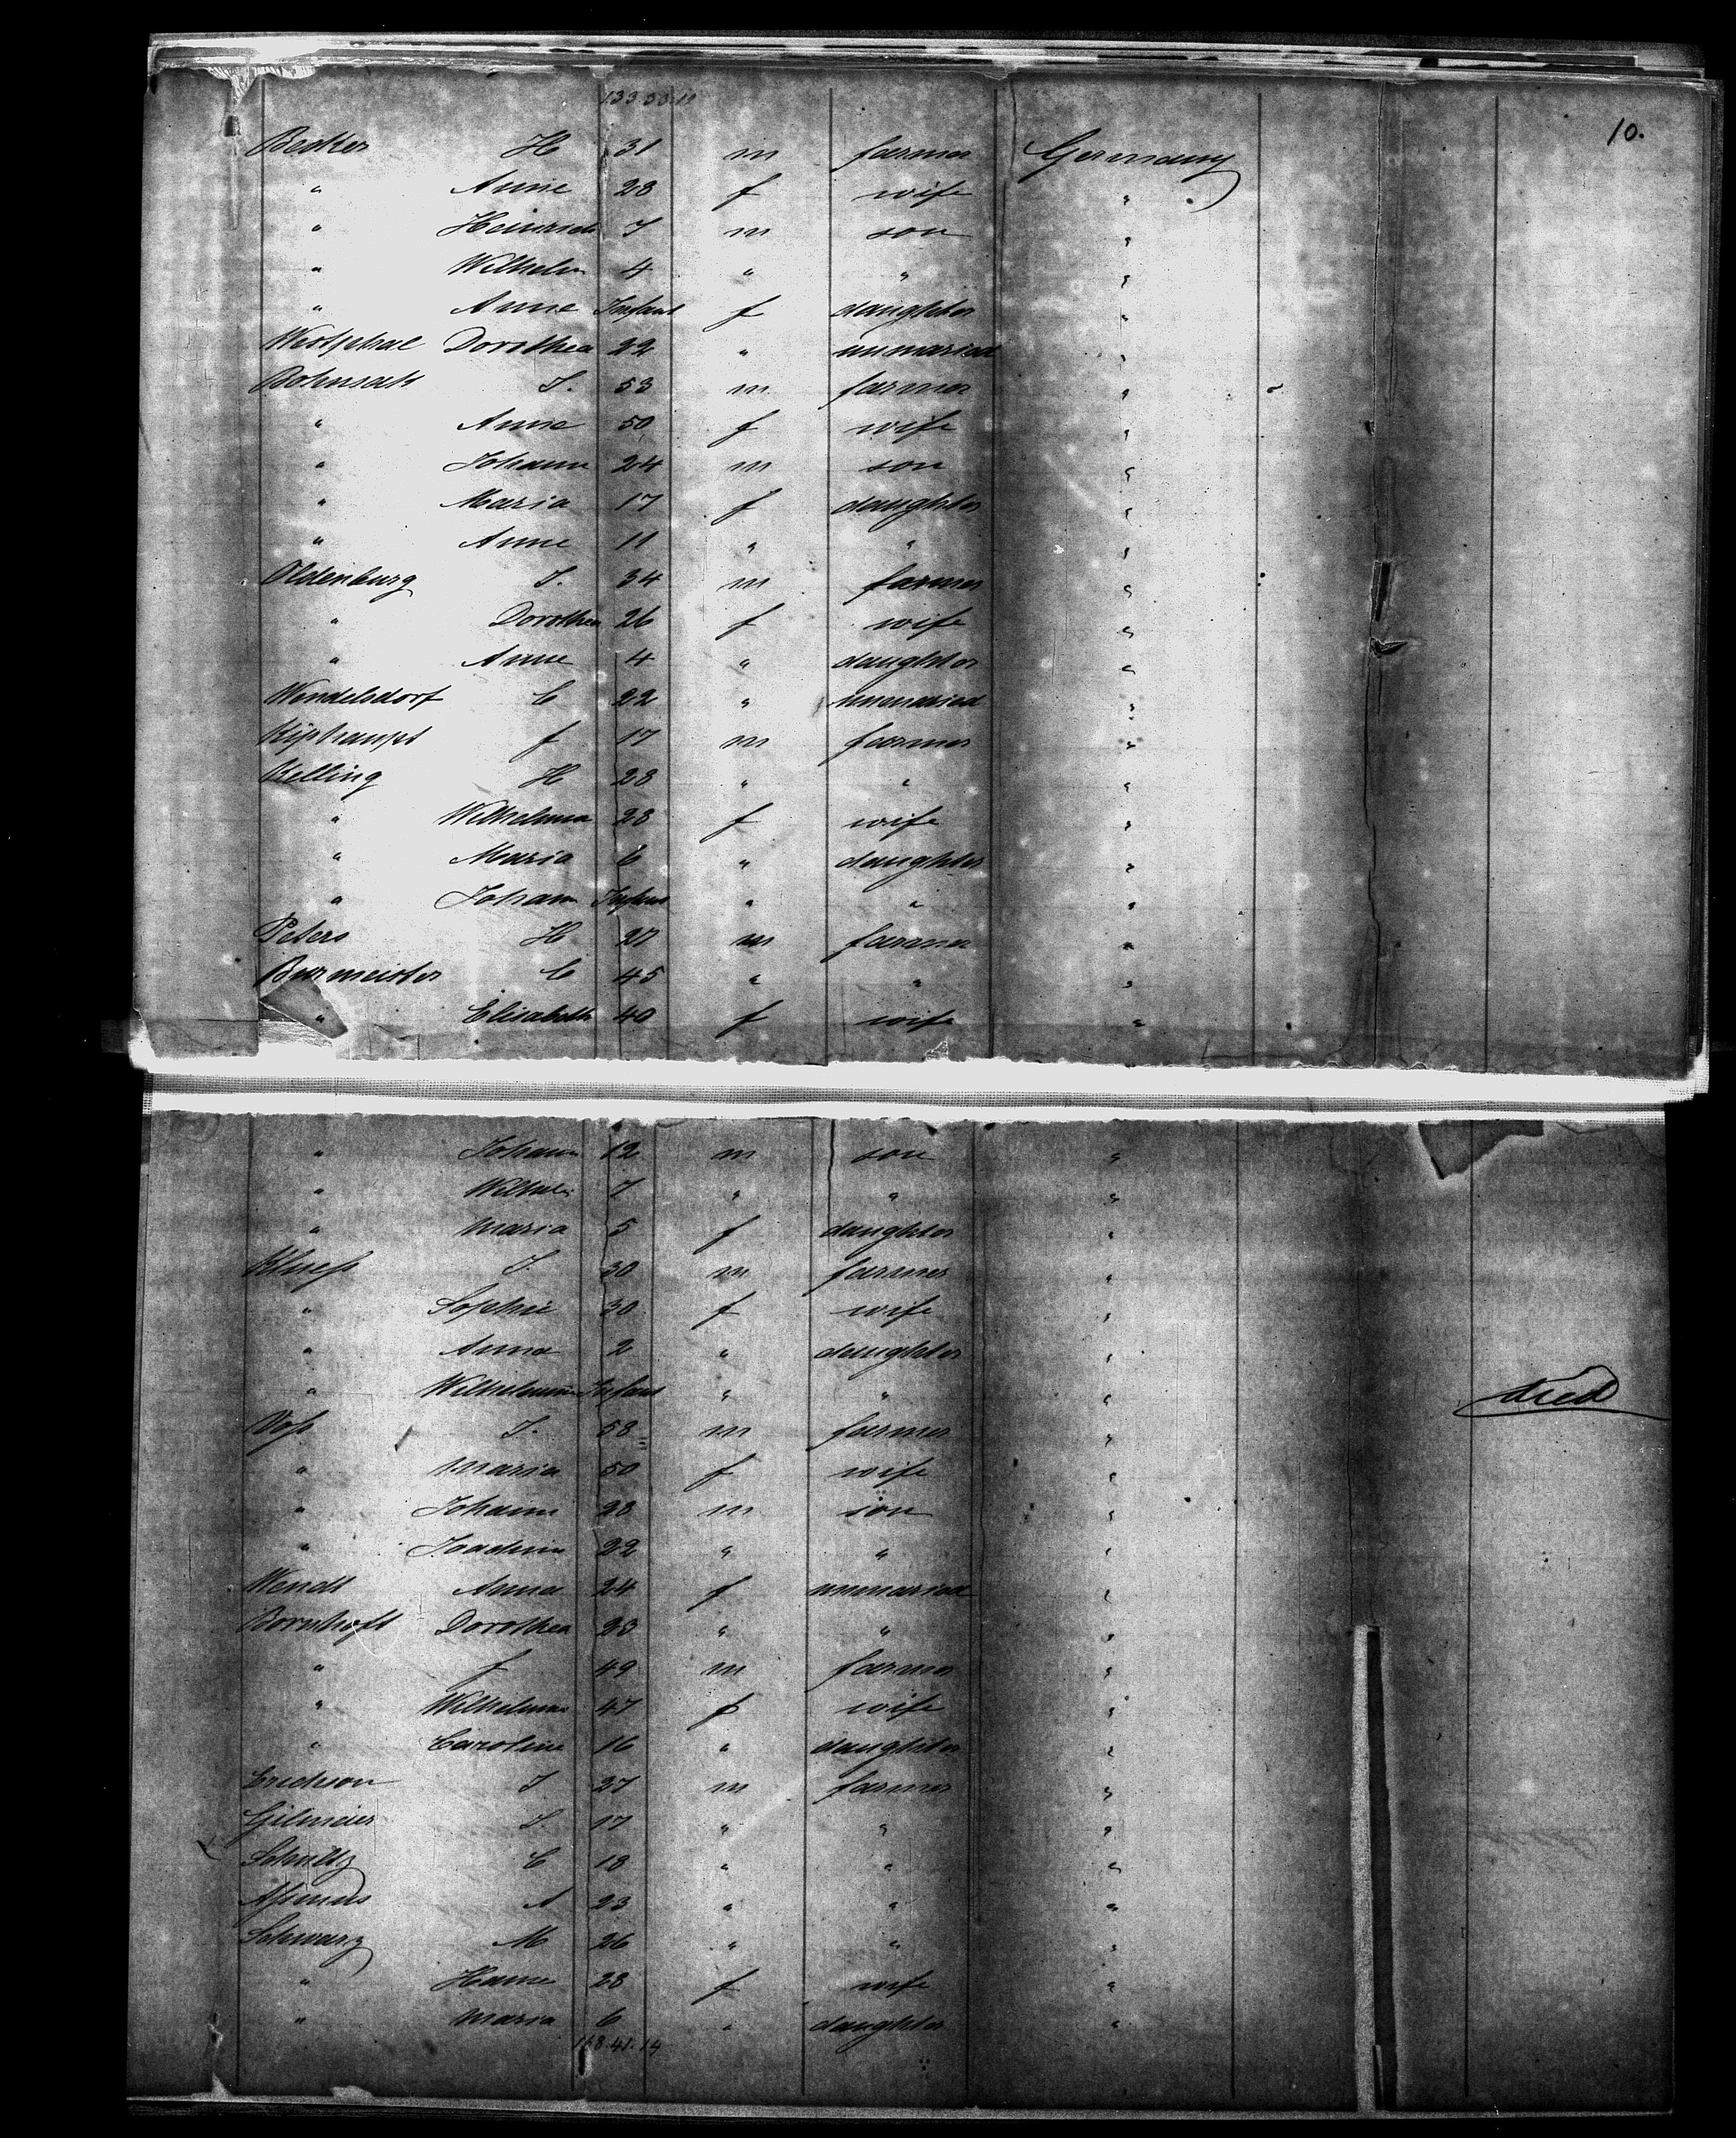 133.33.10
10.
Becker H 31 m farmer Germany
" Anne 28 f wife "
" Heinrich 7 m son "
" Wilhelm 4 " " "
" Anne Infant f daughter "
Westphal Dorothea 22 " unmaried "
Bohnsak J. 53 m farmer "
" Anne 50 f wife "
" Johann 24 m son "
" Maria 17 f daughter "
" Anne 11 " " "
Oldenburg J. 34 m farmer "
" Dorothea 26 f wife "
" Anne 4 " daughter "
Wendelsdorf C 22 " unmaried "
f 17 m farmer "
Kelling H 28 " " "
" Wilhelmina 28 f wife "
" Maria 6 " daughter "
" Johann Infant " " "
Peters H 27 m farmer "
Burmeister C 45 " " "
" Elisabeth 40 f wife "
" Johann 12 m son "
" Wilhelm 7 " " "
" Maria 5 f daughter "
J. 30 m farmer "
" Sophie 30 f wife "
" Anna 2 " daughter "
" Wilhelmine Infant " " " died
Voss J. 58 m farmer "
" Maria 50 f wife "
" Johann 28 m son "
" 22 " " "
Wendt Anna 24 f unmaried "
Bornhoft Dorothea 23 " " "
" f 49 m farmer "
" Wilhelmine 47 f wife "
" Caroline 16 " daughter "
Erickson J 27 m farmer "
Gilmeier J. 17 " " "
Schultz C 18 " " "
Assmus A 23 " " "
Schwarz M 26 " " "
" Hanne 28 f wife "
" Maria 6 " daughter "
168.41.14